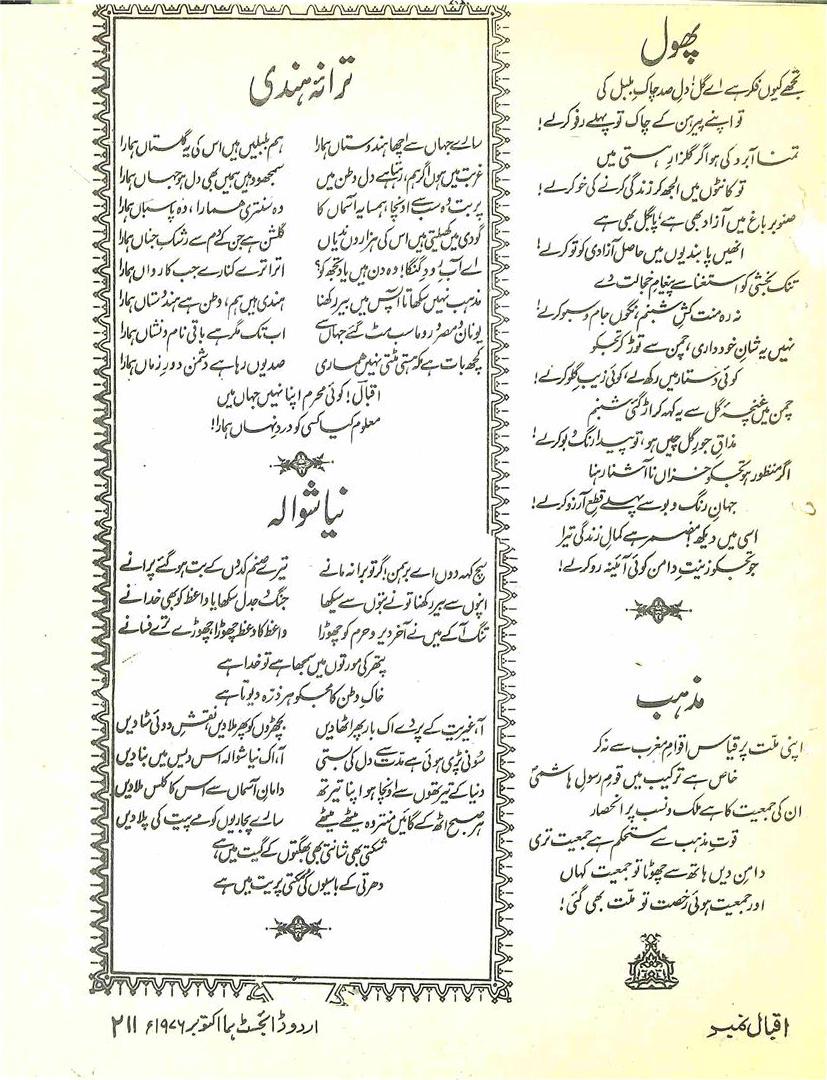 پھول
تجھے کیوں فکر ہے اے گل دلِ صد چاکِ بلبل کی
تو اپنے پیرہن کے چاک تو پہلے رفو کر لے!
تمنا آبرو کی ہو اگر گلزارِ ہستی میں
تو کانٹوں میں الجھ کر زندگی کرنے کی خو کر لے!
صنوبر باغ میں آزاد بھی ہے، پابگل بھی ہے
انھیں پابندیوں میں حاصل آزادی کو تو کر لے!
تنک بخشی کو استغنا سے پیغامِ خجالت دے
نہ رہ منت کشِ شبنم، نگوں جام و سبو کر لے!
نہیں یہ شانِ خودداری، چمن سے توڑ کر تجھکو
کوئی دستار میں رکھ لے، کوئی زیبِ گلو کر لے!
چمن میں غنچۂ گل سے یہ کہہ کر اڑ گئی شبنم
مذاقِ جورِ گلچیں ہو، تو پیدا رنگ و بو کر لے!
اگر منظور ہو تجھکو خزاں ناآشنا رہنا
جہانِ رنگ و بو سے پہلے قطعِ آرزو کر لے!
اسی میں دیکھ، مضمر ہے کمالِ زندگی تیرا
جو تجھکو زینتِ دامن کوئی آئینہ رو کر لے!
مذہب
اپنی ملت پر قیاس اقوامِ مغرب سے نہ کر
خاص ہے ترکیب میں قومِ رسولِ ہاشمیؐ
ان کی جمعیت کا ہے ملک و نسب پر انحصار
قوتِ مذہب سے مستحکم ہے جمعیت تری
دامنِ دیں ہاتھ سے چھوٹا تو جمعیت کہاں
اور جمعیت ہوئی رخصت تو ملت بھی گئی!
ترانۂ ہندی
سارے جہاں سے اچھا ہندوستاں ہمارا ہم بلبلیں ہیں اس کی یہ گلستاں ہمارا
غربت میں ہوں اگر ہم، رہتا ہے دل وطن میں سمجھو وہیں ہمیں بھی دل ہو جہاں ہمارا
پربت وہ سب سے اونچا ہمسایہ آسماں کا وہ سنتری ہمارا، وہ پاسباں ہمارا
گودی میں کھیلتی ہیں اس کی ہزاروں ندیاں گلشن ہے جن کے دم سے رشکِ جناں ہمارا
اے آبِ رودِ گنگا! وہ دن ہیں یاد تجھ کو؟ اترا ترے کنارے جب کارواں ہمارا
مذہب نہیں سکھاتا آپس میں بیر رکھنا ہندی ہیں ہم، وطن ہے ہندوستاں ہمارا
یونان و مصر و روما سب مٹ گئے جہاں سے اب تک مگر ہے باقی نام و نشاں ہمارا
کچھ بات ہے کہ ہستی مٹتی نہیں ہماری صدیوں رہا ہے دشمن دورِ زماں ہمارا
اقبالؔ! کوئی محرم اپنا نہیں جہاں میں
معلوم کیا کسی کو دردِ نہاں ہمارا!
نیا شوالہ
سچ کہہ دوں اے برہمن! گر تو برا نہ مانے تیرے صنم کدوں کے بت ہو گئے پرانے
اپنوں سے بیر رکھنا تو نے بتوں سے سیکھا جنگ و جدل سکھایا واعظ کو بھی خدا نے
تنگ آ کے میں نے آخر دیر و حرم کو چھوڑا واعظ کا وعظ چھوڑا، چھوڑے ترے فسانے
پتھر کی مورتوں میں سمجھا ہے تو خدا ہے
خاکِ وطن کا مجھکو ہر ذرہ دیوتا ہے
آ، غیریت کے پردے اک بار پھر اٹھا دیں بچھڑوں کو پھر ملا دیں، نقشِ دوئی مٹا دیں
سونی پڑی ہوئی ہے مدت سے دل کی بستی آ، اک نیا شوالہ اس دیس میں بنا دیں
دنیا کے تیرتھوں سے اونچا ہو اپنا تیرتھ دامانِ آسماں سے اس کا کلس ملا دیں
ہر صبح اٹھ کے گائیں منتر وہ میٹھے میٹھے سارے پجاریوں کو مے پریت کی پلا دیں
شکتی بھی شانتی بھی بھگتوں کے گیت میں ہے
دھرتی کے باسیوں کی مکتی پریت میں ہے
اقبال نمبر
اردو ڈائجسٹ ہما اکتوبر ۱۹۷۶ء ۲۱۱